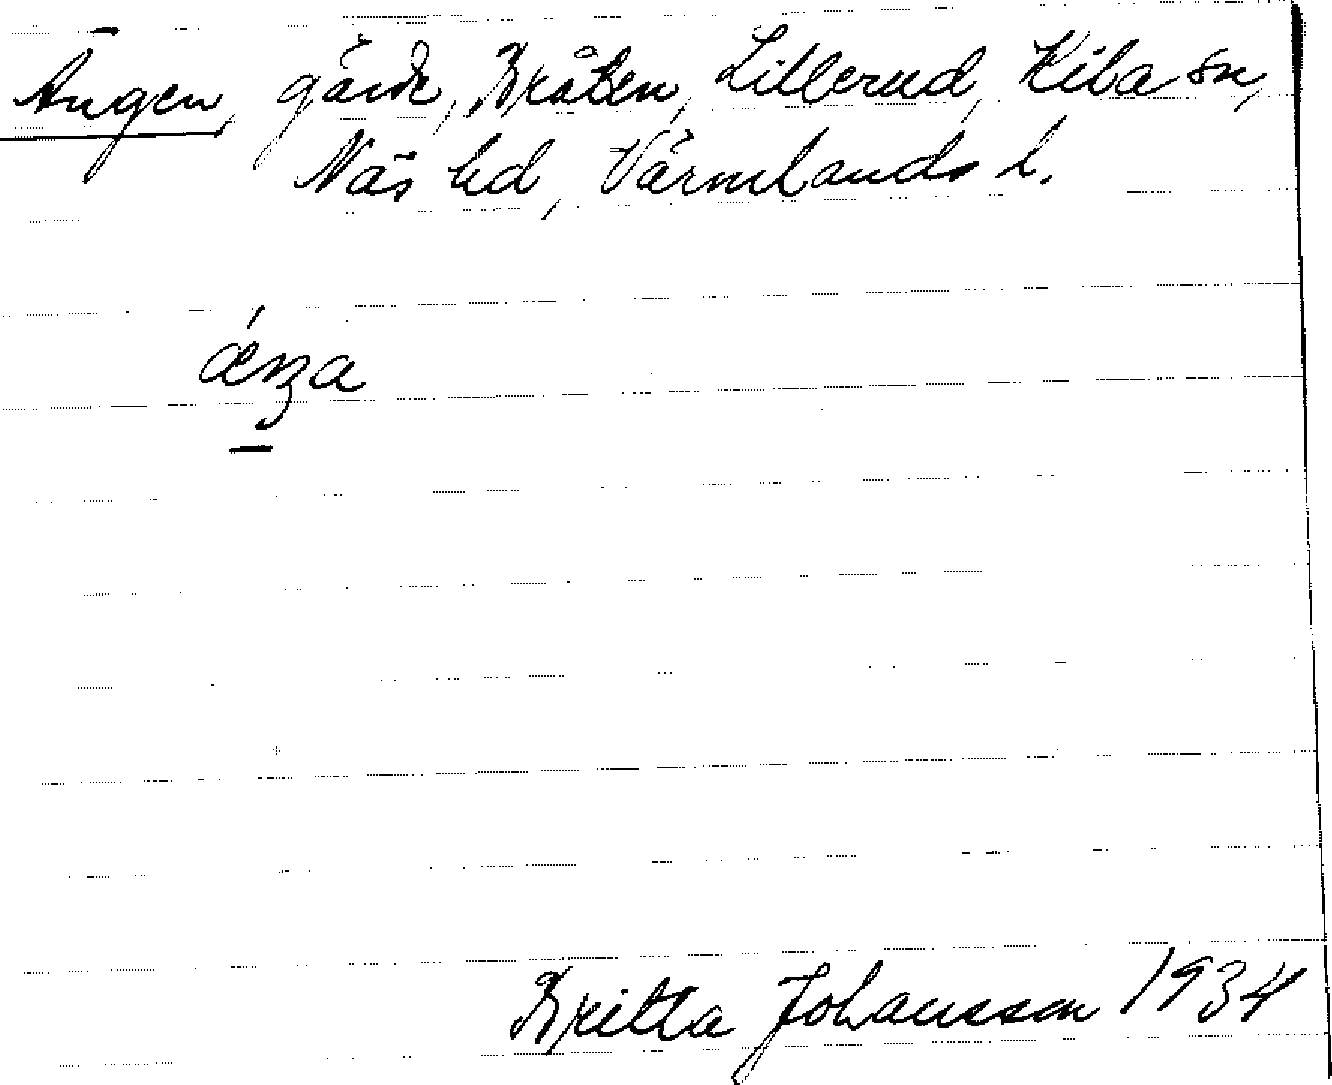 Ängen, gärde, Bråten, Lillerud, Kila sn,
Näs hd, Värmlands l.
ǽŋa
Britta Johansson 1934